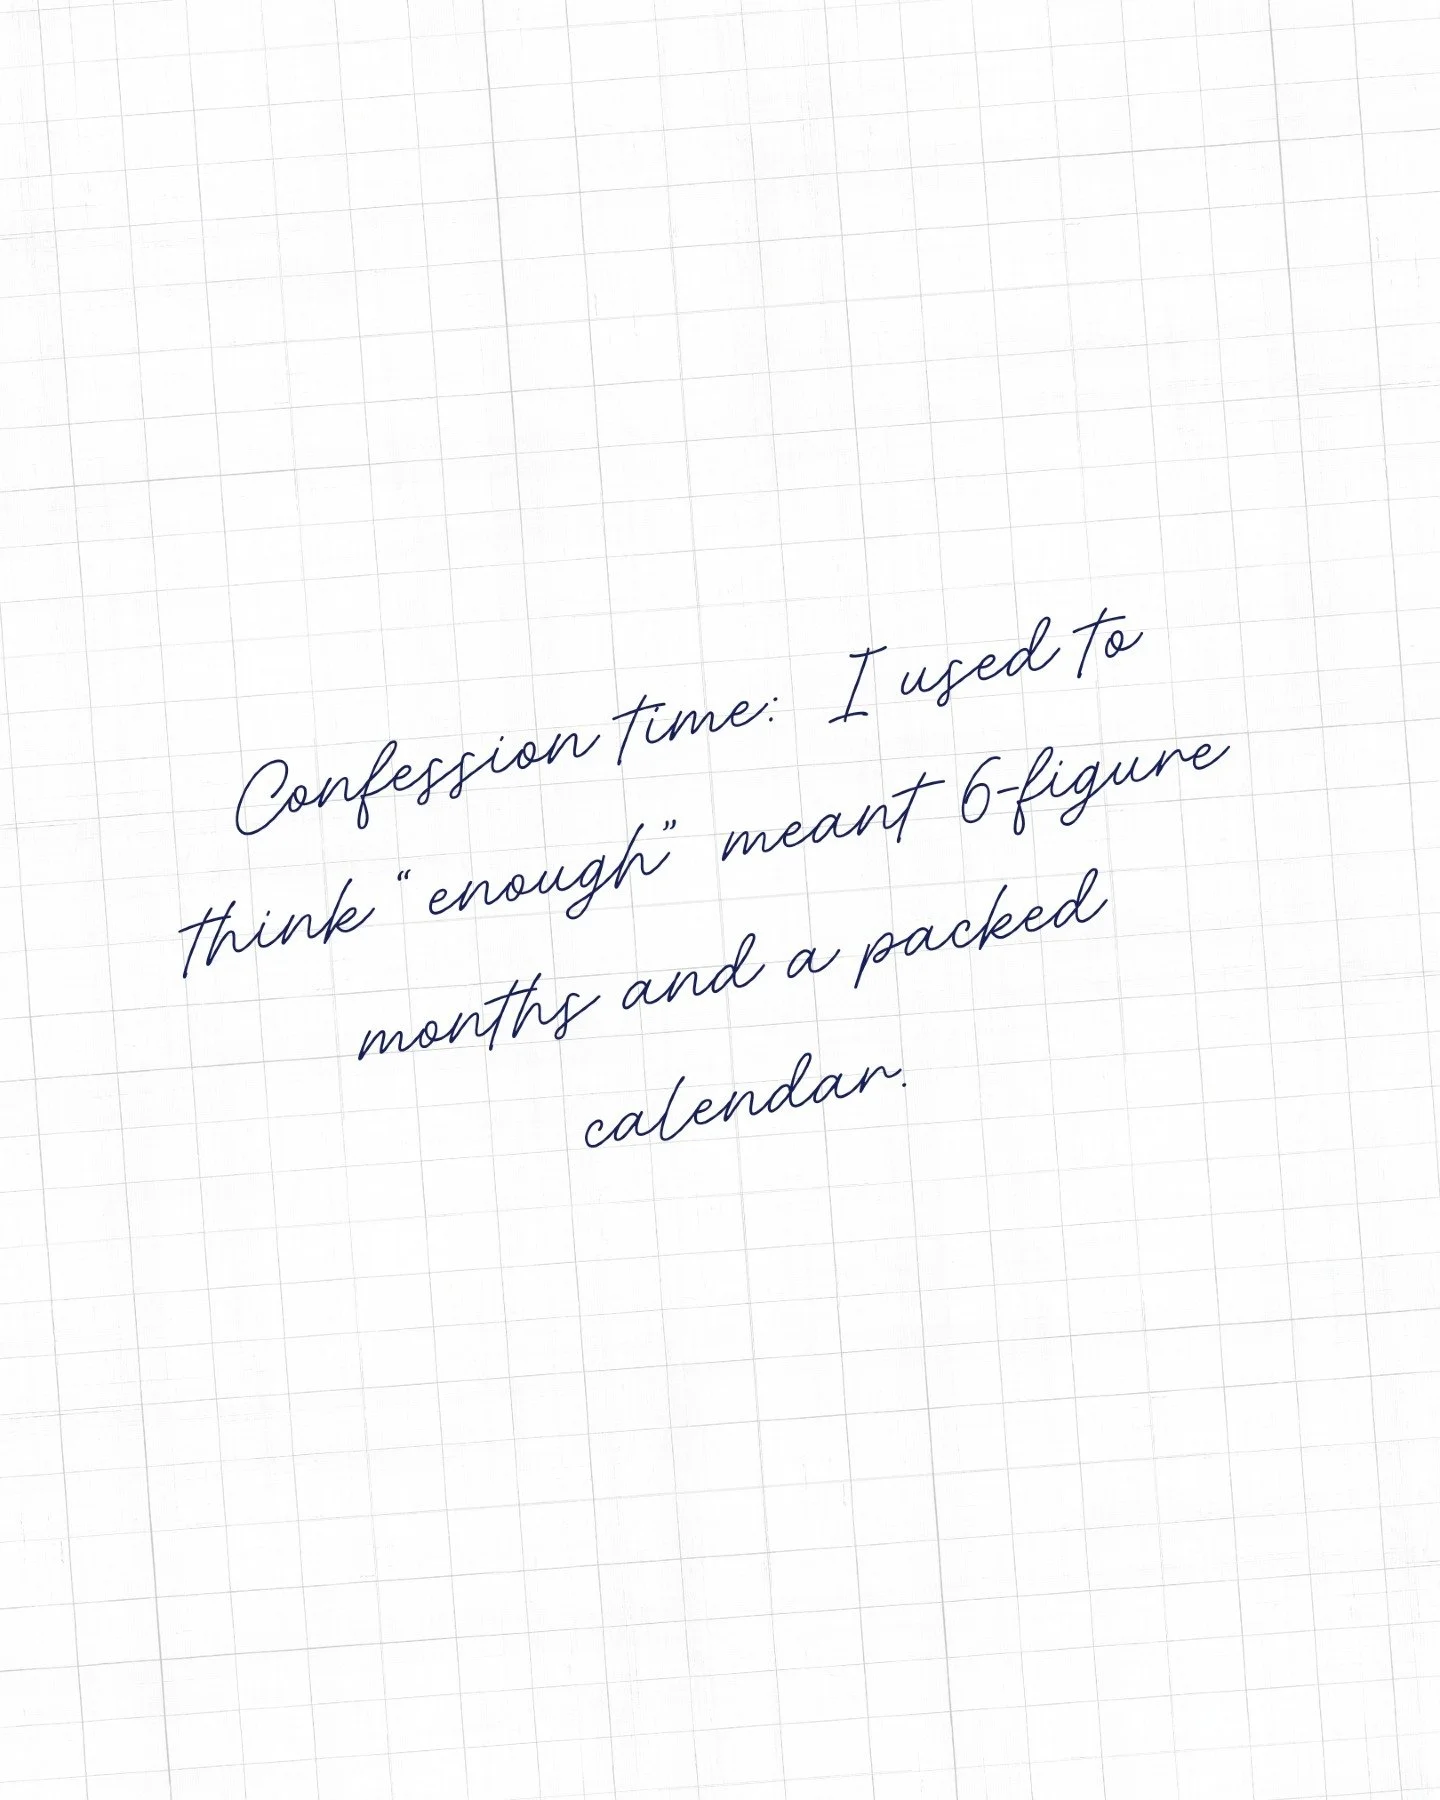 Confession time: I used to
think “enough” meant 6-figure
months and a packed
calendar.